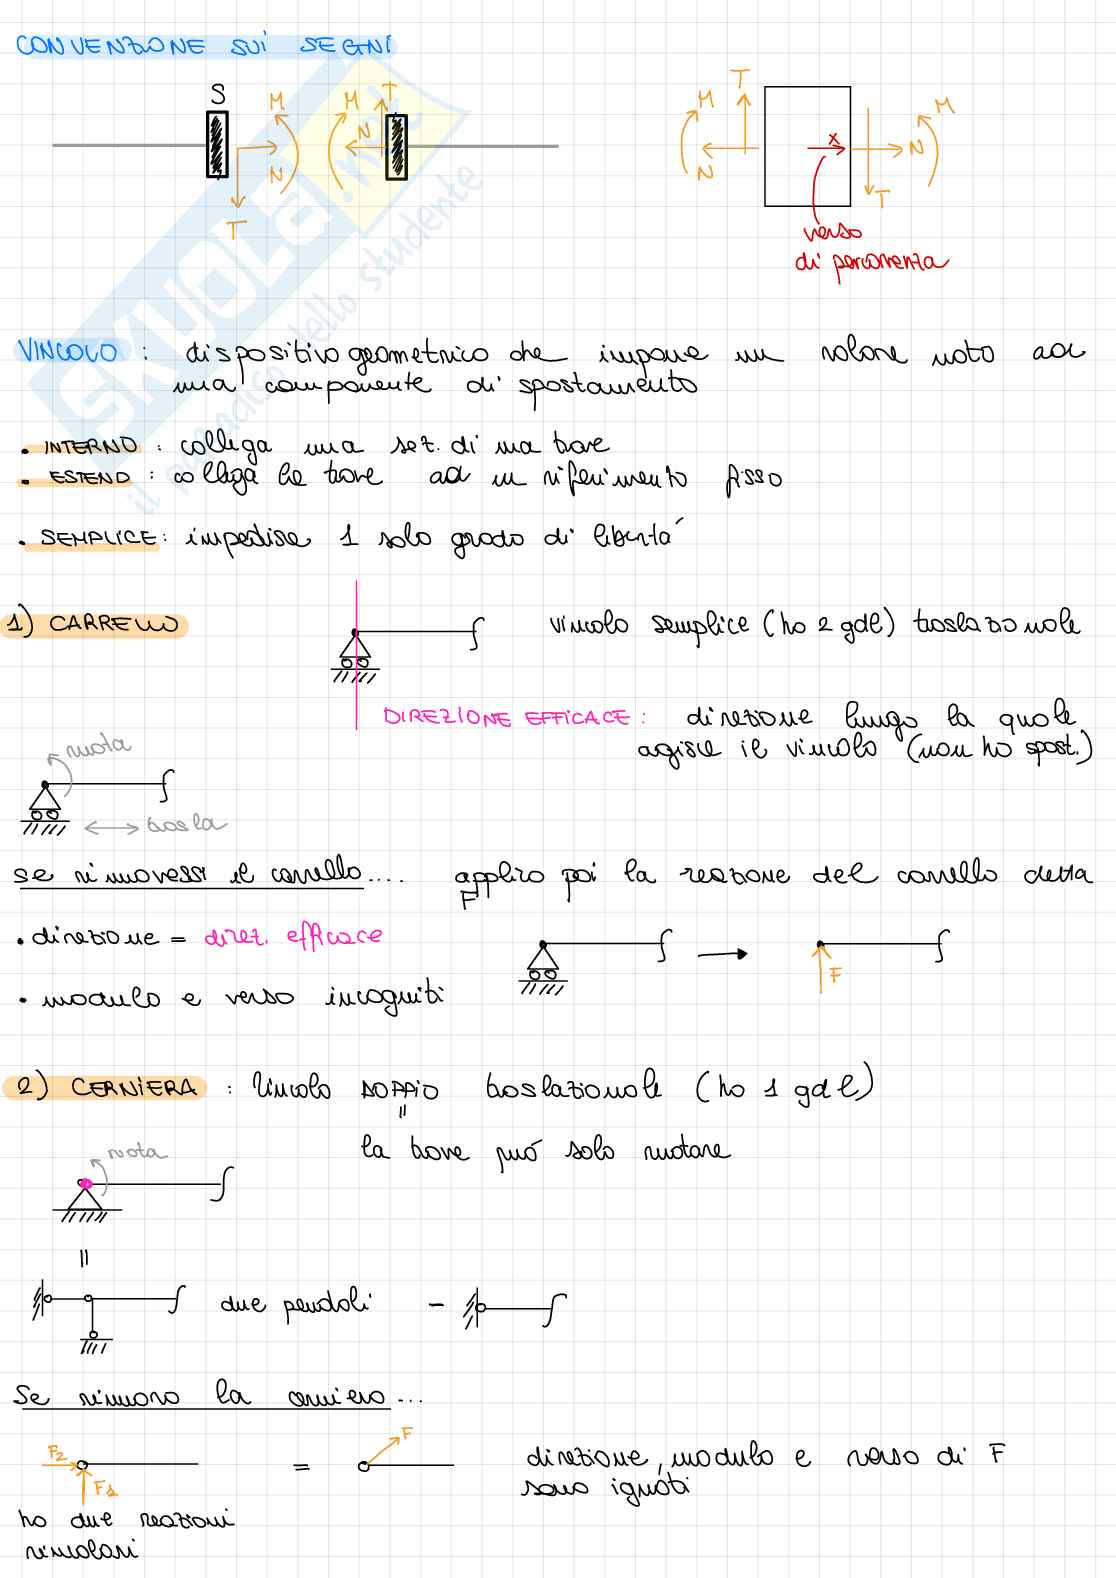 CONVENZIONE SUI SEGNI
S
M
M
T
N
N
T
T
M
M
N
x
N
T
verso
di percorrenza
SKUOLA.net
il paradiso dello studente
VINCOLO : dispositivo geometrico che impone un valore noto ad
una componente di spostamento
• INTERNO : collega una sez. di una trave
• ESTERNO : collega le trave ad un riferimento fisso
• SEMPLICE : impedisce 1 solo grado di libertá
1) CARRELLO
vincolo semplice (ho 2 gdl) traslazionale
DIREZIONE EFFICACE : direzione lungo la quale
agisce il vincolo (non ho spost.)
ruota
trasla
se rimovessi il carrello.... applico poi la reazione del carrello detta
F
• direzione = direz. efficace
• modulo e verso incogniti
F
2) CERNIERA : Vincolo DOPPIO traslazionale (ho 1 gdl)
=
la trave puó solo ruotare
ruota
=
due pendoli -
Se rimuovo la cerniera...
F2
F1
=
F
direzione, modulo e verso di F
sono ignoti
ho due reazioni
vincolari